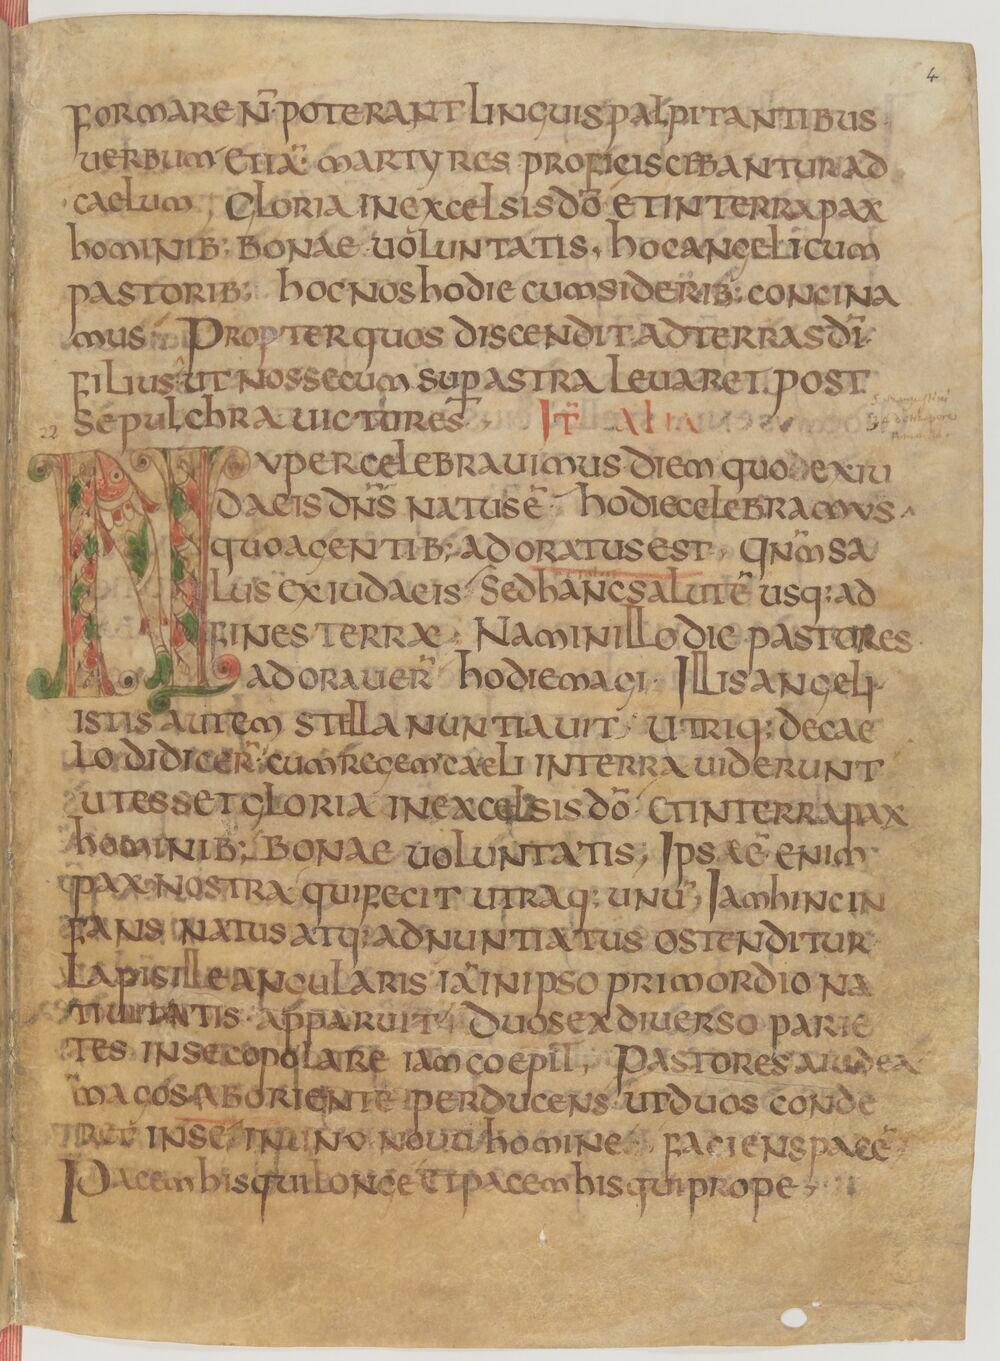 4
formare n̄ poterant linguis palpitantibus
uerbum etiā martyres proficiscebantur ad
caelum, Gloria in excelsis dō et in terra pax
hominib; bonae uoluntatis, hoc angelicum
pastorib; hoc nos hodie cum siderib; concina
mus Propter quos discendit ad terras dī
filius ut nos secum sup̄ astra leuaret post
sepulchra uictores, It̄ alia
22
Nuper celebrauimus diem quo ex iu
daeis dn̄s natus ē hodie celebramus
quo a gentib; adoratus est, Qn̄m sa
lus ex iudaeis Sed hanc salutē usq; ad
fines terræ, Nam in illo die pastores
adorauer̄ hodie magi Illis angeli
istis autem stella nuntiauit Utriq; de cae
lo didicer̄ cum regem caeli in terra uiderunt
ut esset gloria in excelsis dō et in terra pax
hominib; bonae uoluntatis, Ipsæ ē enim
pax nostra qui fecit utraq; unū, Iam hinc in
fans natus atq; adnuntiatus ostenditur
lapis ille angularis iā in ipso primordio na
tiuitatis apparuit, Duos ex diuerso parie
tes in se copolare iam coepit, Pastores a iudea
magos ab oriente perducens ut duos conde
ret in se in uno nouo homine faciens pacē
Pacem his qui longe et pacem his qui prope,